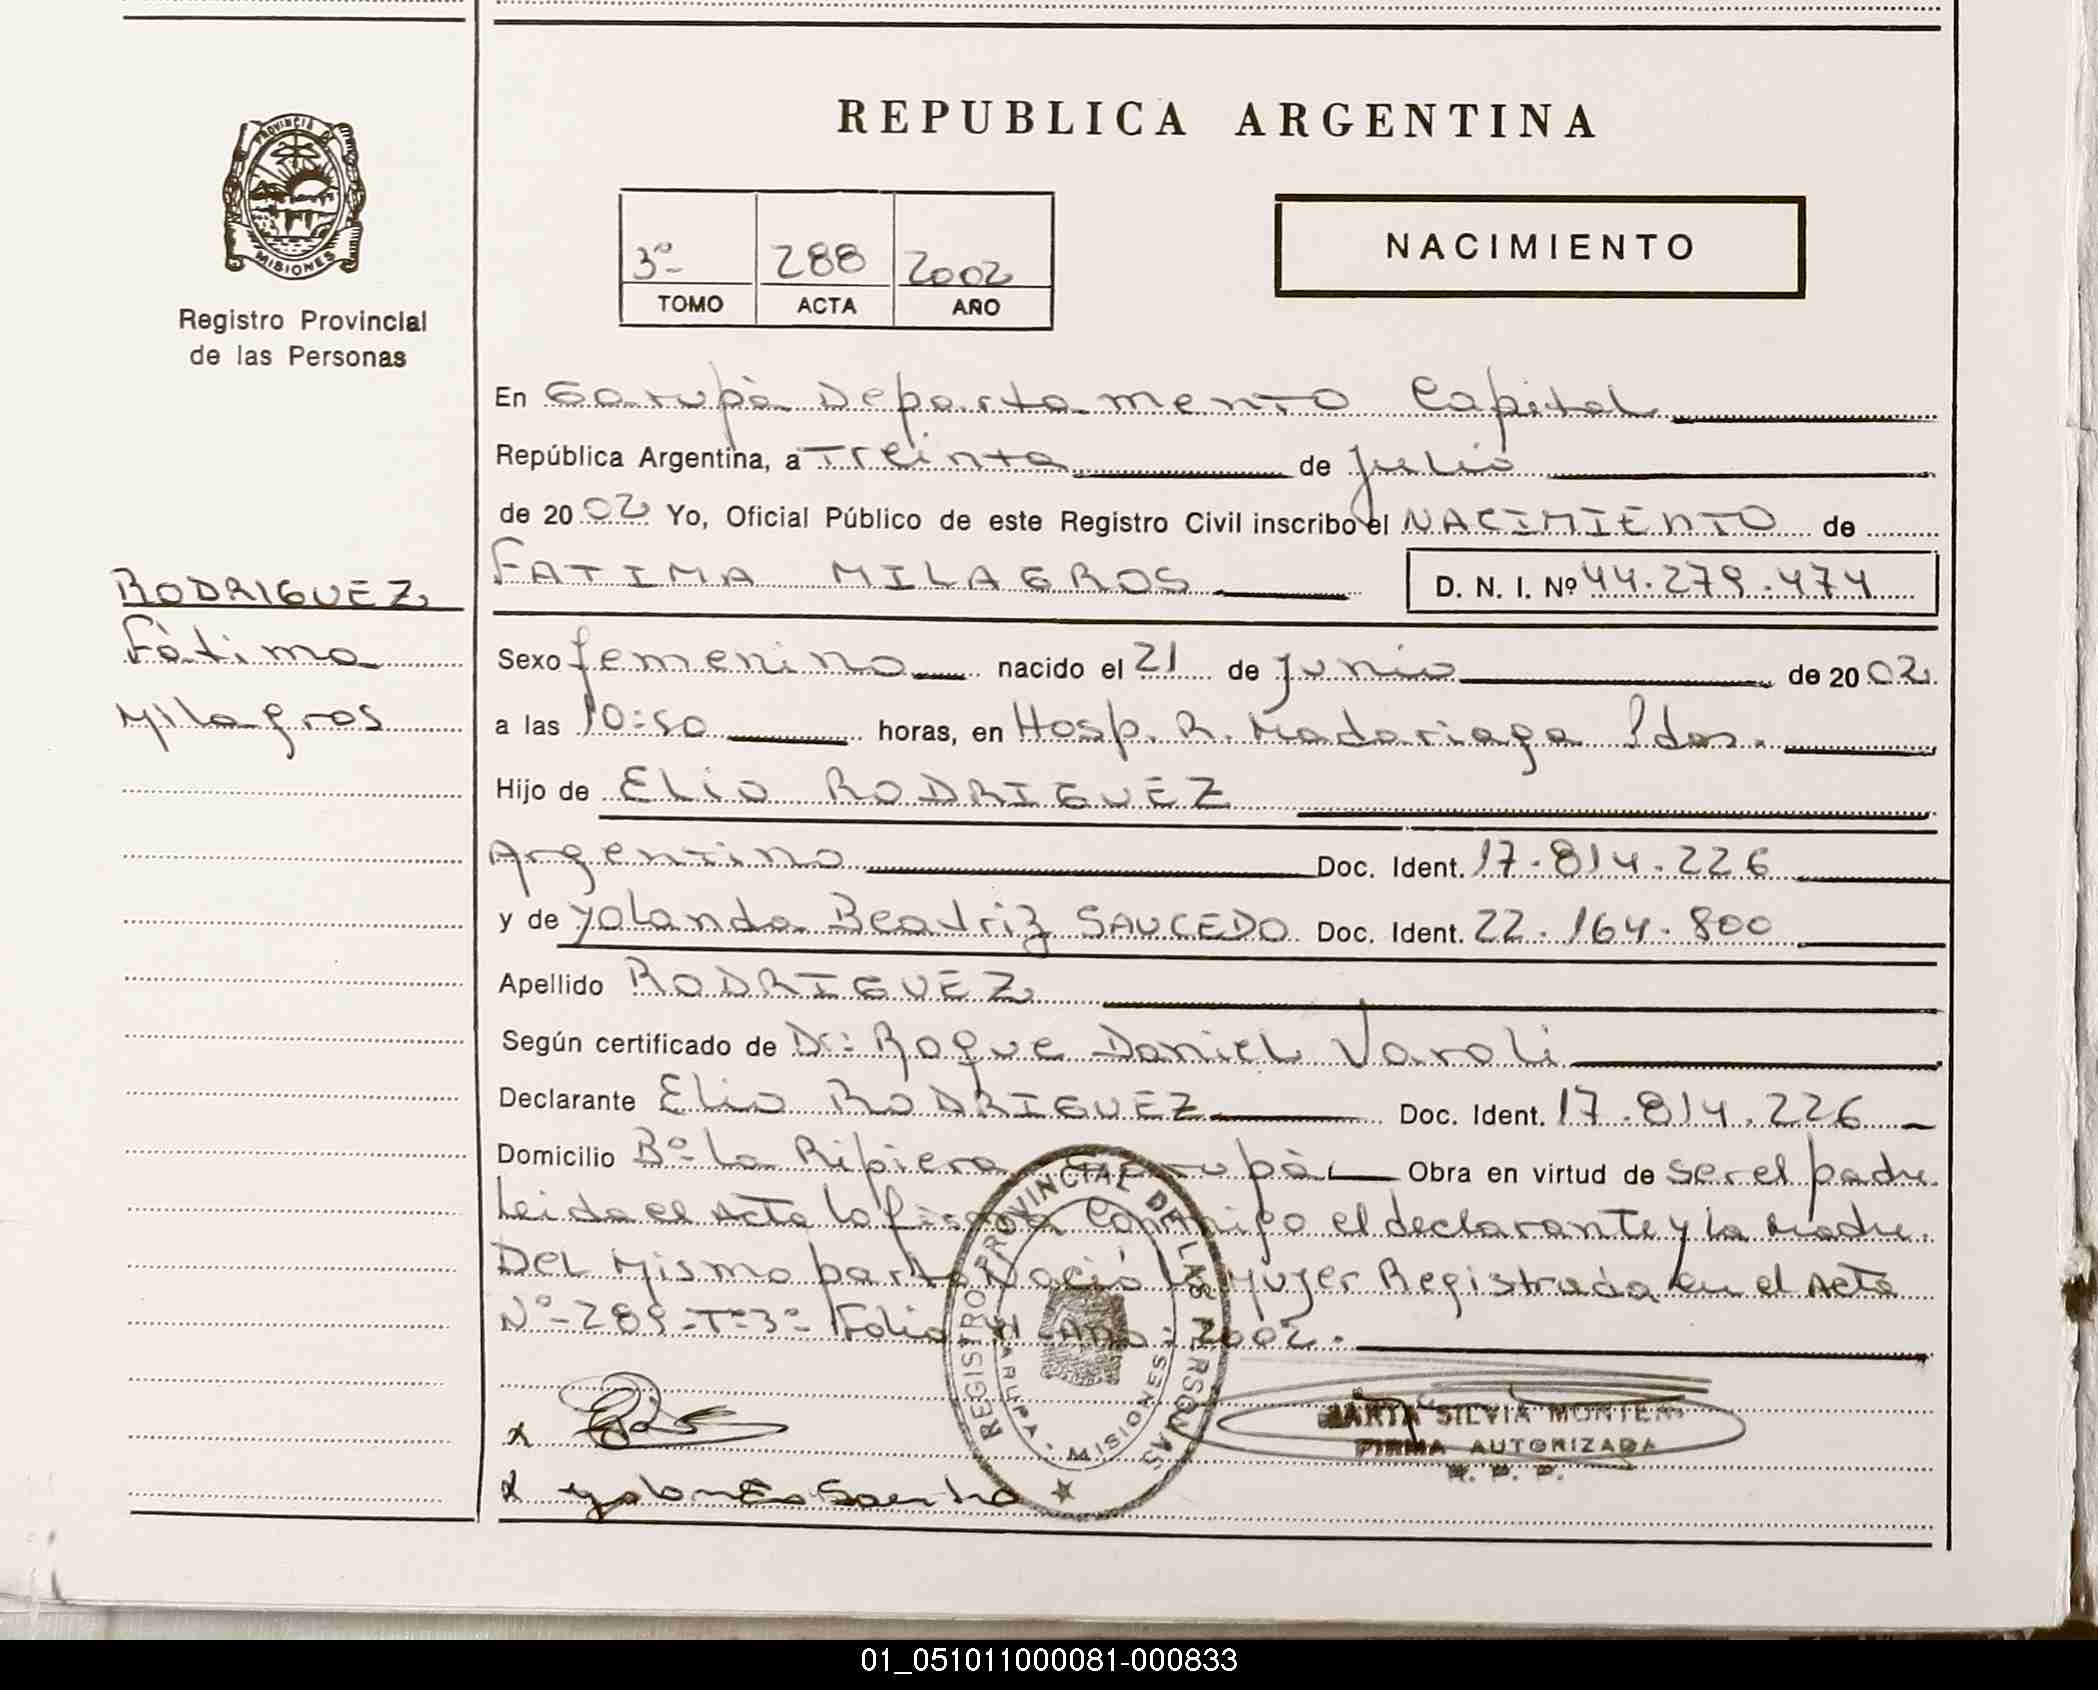 REPUBLICA ARGENTINA
PROVINCIA DE
MISIONES
Registro Provincial
de las Personas
3º 288 2002
TOMO ACTA AÑO
NACIMIENTO
En Garupà Departamento Capital
República Argentina, a Treinta de Julio
de 2002 Yo, Oficial Público de este Registro Civil inscribo el NACIMIENTO de
RODRIGUEZ
Fàtima
Milagros
FATIMA MILAGROS D. N. I. Nº 44.279.474
Sexo femenino nacido el 21 de Junio de 2002
a las 10:50 horas, en Hosp. R. Madariaga Pdas.
Hijo de Elio RODRIGUEZ
Argentino Doc. Ident. 17.814.226
y de Yolanda Beatriz SAUCEDO Doc. Ident. 22.164.800
Apellido RODRIGUEZ
Según certificado de Dr: Roque Daniel Varoli
Declarante Elio RODRIGUEZ Doc. Ident. 17.814.226
Domicilio Bº La Ripiera Garupà Obra en virtud de ser el padre
Leida el Acta la firman Conmigo el declarante y la Madre.
Del Mismo parto Nació la Mujer Registrada en el Acta
Nº 289 Tº 3º Folio 41 Año 2002.
REGISTRO PROVINCIAL DE LAS PERSONAS
GARUPA - MISIONES
MARTA SILVIA
FIRMA AUTORIZADA
R. P. P.
x
x Yolanda Saucedo
01_051011000081-000833